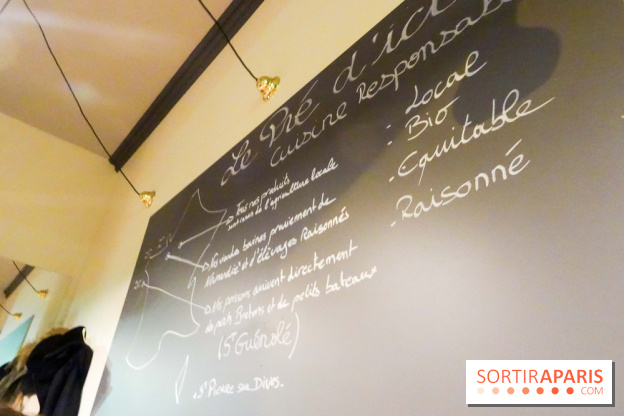 Le Pré d'ici
cuisine Responsable
- Local
- Bio
- Equitable
- Raisonné
nos produits
de l'agriculture locale
Nos viandes bovines proviennent de
Normandie et d'élevages Raisonnés
Nos poissons arrivent directement
de ports Bretons et de petits bateaux
(St Guénolé)
St Pierre sur Dives.
SORTIRAPARIS
COM